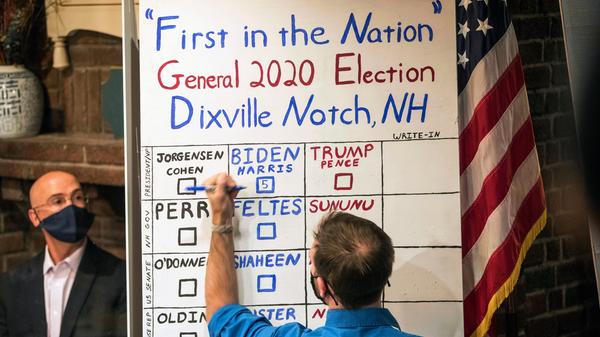 "First in the Nation"
General 2020 Election
Dixville Notch, NH
WRITE-IN
PRESIDENT/VP
JORGENSEN COHEN
BIDEN HARRIS
5
TRUMP PENCE
NH GOV
PERR
FELTES
SUNUNU
US SENATE
O'DONNE
SHAHEEN
OLDIN
USTER
N